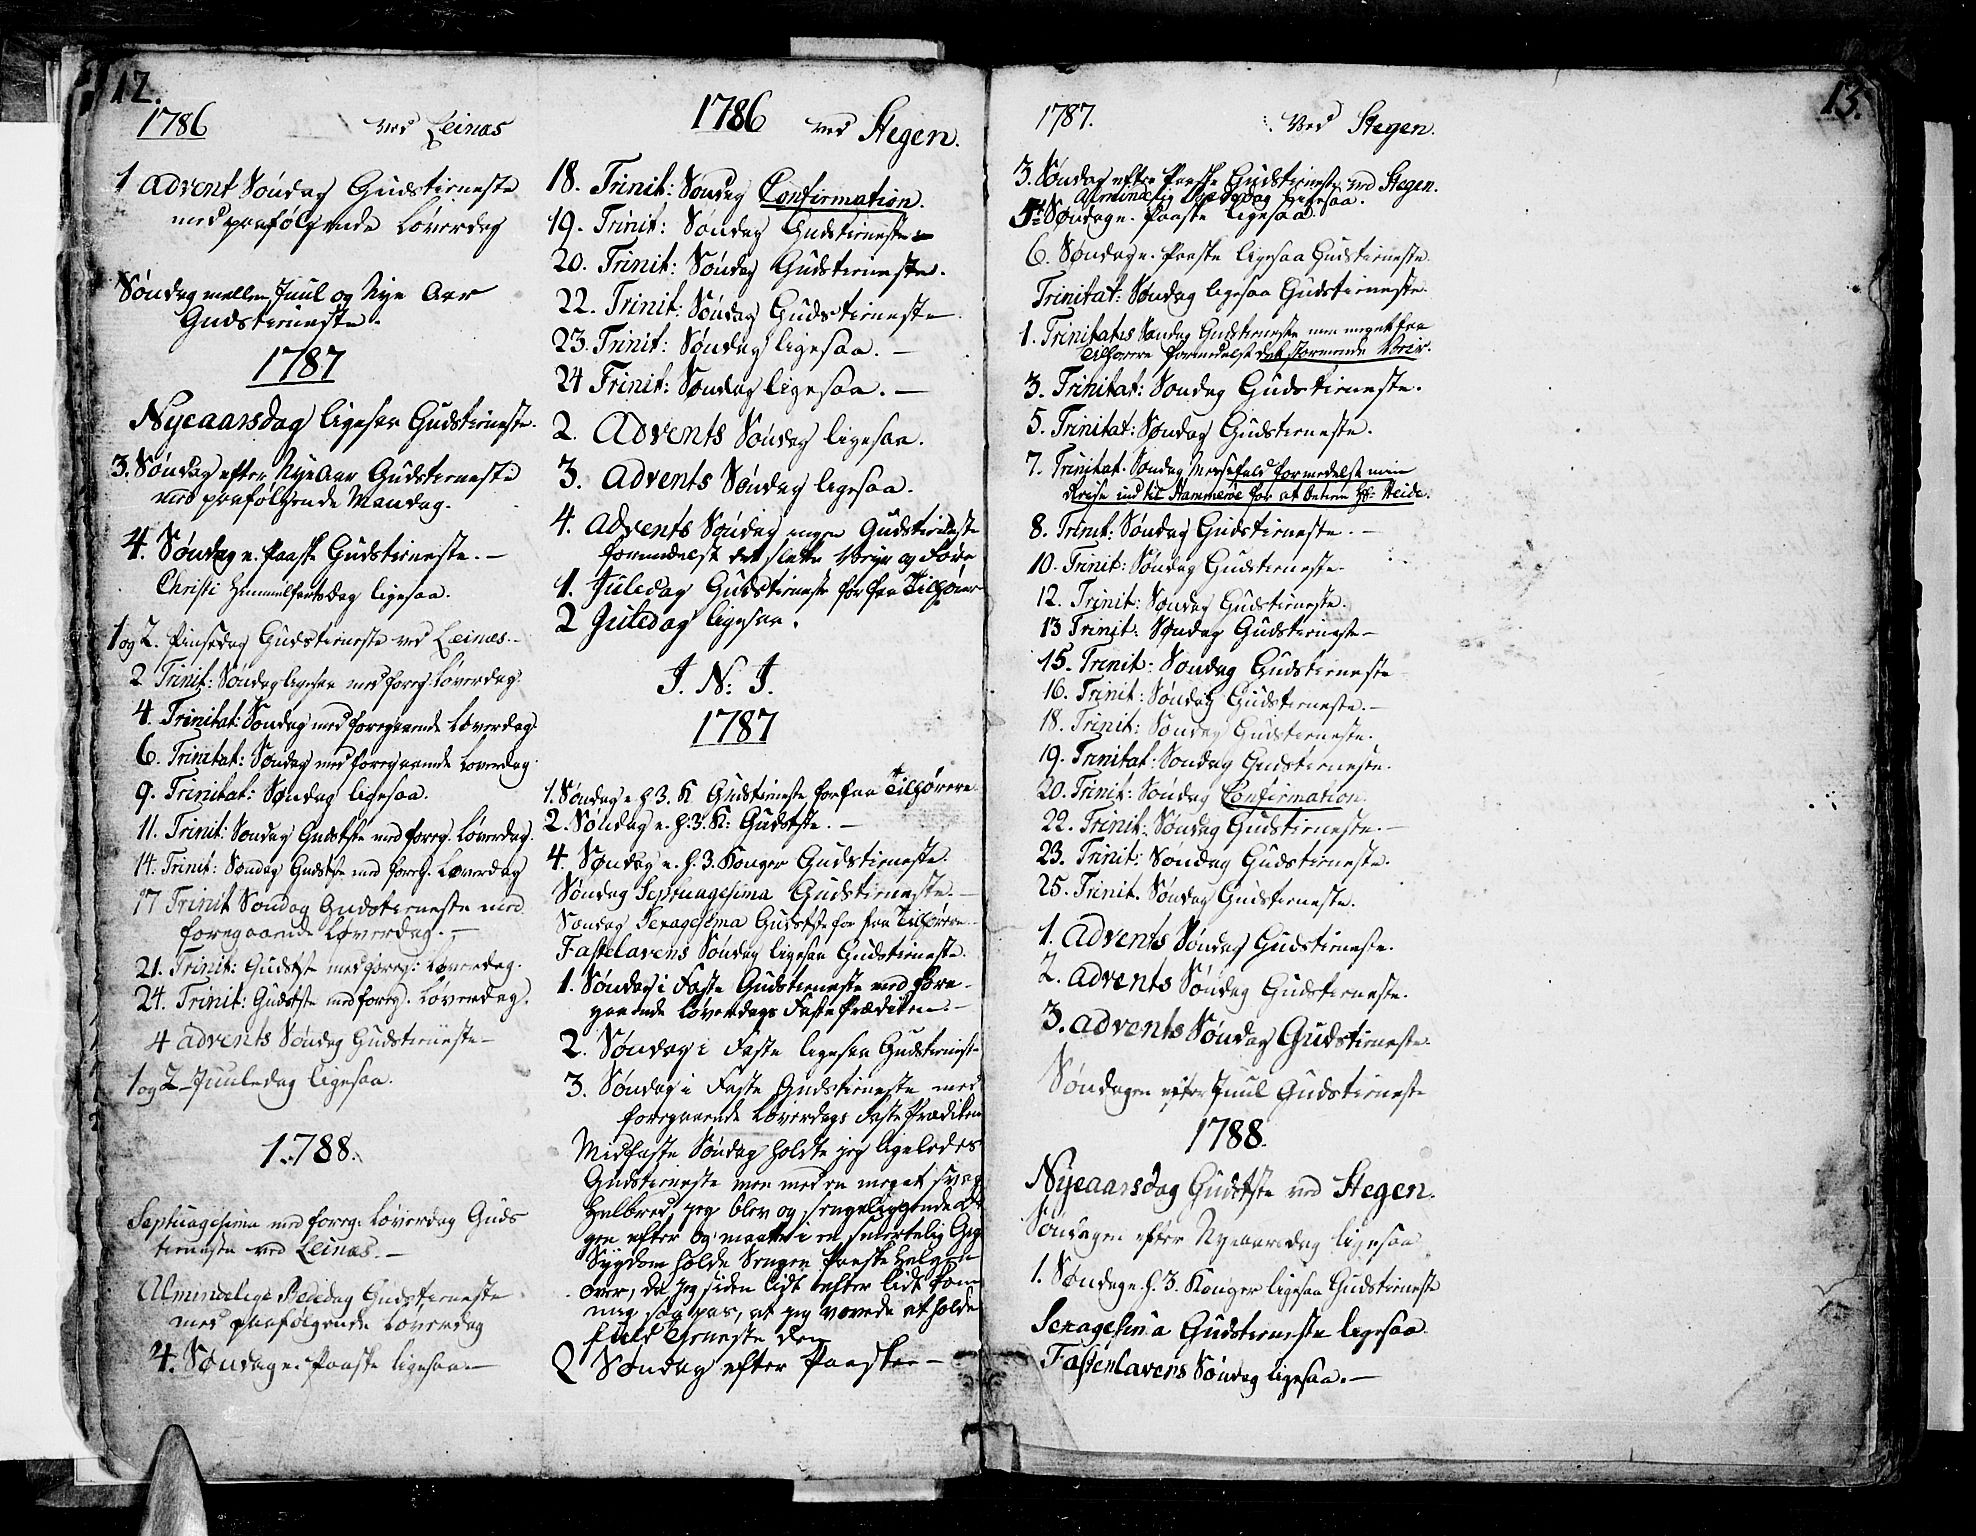 12.
1786 ved Leines
1 Advent Søndag Gudstieneste
med paafølgende Løverdag
Søndag mellem Juul og Nye Aar
Gudstieneste.
1787
Nyeaarsdag ligesaa Gudstieneste.
3. Søndag efter Nye Aar Gudstieneste
med paafølgende Mandag.
4. Søndag e. Paaske Gudstieneste. –
Christi Himmelfartsdag ligesaa.
1 og 2. Pinsedag Gudstieneste ved Leines. –
2 Trinit: Søndag ligesaa med foreg: Løverdag.
4. Trinitat: Søndag med foregaaende Løverdag.
6. Trinitat: Søndag med foregaaende Løverdag.
9. Trinitat: Søndag ligesaa.
11. Trinit: Søndag Gudstste med foreg. Løverdag.
14. Trinit: Søndag Gudstste med foreg. Løverdag
17 Trinit Søndag Gudstieneste med
foregaaende Løverdag. –
21. Trinit: Gudstste med foreg: Løverdag.
24. Trinit: Gudstste med foreg. Løverdag.
4 Advents Søndag Gudstieneste –
1 og 2 Juuledag ligesaa.
1788.
Septuagesima med foreg: Løverdag Guds
tieneste ved Leines. –
Almindelige Bededag Gudstieneste
med paafølgende Løverdag
4. Søndag e. Paaske ligesaa. –
1786 ved Stegen.
18. Trinit: Søndag Confirmation.
19. Trinit: Søndag Gudstieneste –
20. Trinit: Søndag Gudstieneste.
22. Trinit: Søndag Gudstieneste
23. Trinit: Søndag ligesaa. –
24 Trinit: Søndag ligesaa. –
2. Advents Søndag ligesaa.
3. Advents Søndag ligesaa.
4. Advents Søndag ingen Gudstieneste
formedelst det slette Veir og Føre
1. Juledag Gudstieneste for faa Tilhørere
2 Juledag ligesaa.
J. N. J.
1787
1. Søndag e. H. 3. K Gudstieneste for faa Tilhørere
2. Søndag e. H: 3. K: Gudstste. –
4. Søndag e. H. 3. Konger Gudstieneste.
Søndag Septuagesima Gudstieneste. –
Søndag Sexagesima Gudstste for faa Tilhørere
Fastelavens Søndag ligesaa Gudstieneste.
1. Søndag i Faste Gudstieneste med fore-
gaaende Løverdags Faste Prædiken. –
2. Søndag i Faste ligesaa Gudstieneste
3. Søndag i Faste Gudstieneste med
foregaaende Løverdags Faste Prædiken
Midfaste Søndag holdte jeg ligeledes
Gudstieneste men med en meget svag
Helbred, jeg blev og sengeliggende
efter og maatte i en smertelig
Sygdom holde Sengen Paaske Helgen
over, da jeg siden lidt efter lidt kom
mig saa pas, at jeg vovede at holde
fuld Tieneste den
2 Søndag efter Paaske –
13.
1787. Ved Stegen.
3. Søndag efter Paaske Gudstieneste ved Stegen.
Almindelig Bededag ligesaa.
5te Søndag e. Paaske ligesaa.
6. Søndag e. Paaske ligesaa Gudstieneste.
Trinitat: Søndag ligesaa Gudstieneste.
1. Trinitatis Søndag Gudstieneste men meget faa
Tilhørere formedelst det stormende Veir.
3. Trinitat: Søndag Gudstieneste.
5. Trinitat: Søndag Gudstieneste.
7. Trinitat. Søndag Messefald formedelst min
Reise ind til Hammerøe for at betiene Hr. Heide.
8. Trinit: Søndag Gudstieneste. –
10. Trinit: Søndag Gudstieneste.
12. Trinit: Søndag Gudstieneste.
13 Trinit: Søndag Gudstieneste –
15. Trinit: Søndag Gudstieneste
16. Trinit: Søndag Gudstieneste. –
18. Trinit: Søndag Gudstieneste.
19. Trinitat: Søndag Gudstieneste.
20. Trinit: Søndag Confirmation.
22. Trinit: Søndag Gudstieneste. –
23. Trinit: Søndag Gudstieneste.
25. Trinit. Søndag Gudstieneste.
1. Advents Søndag Gudstieneste.
2. Advents Søndag Gudstieneste.
3. Advents Søndag Gudstieneste.
Søndagen efter Juul Gudstieneste
1788.
Nyeaarsdag Gudstste ved Stegen.
Søndagen efter Nyeaarsdag ligesaa
1. Søndag e. H. 3. Konger ligesaa Gudstieneste
Sexagesima Gudstieneste ligesaa.
Fastenlavens Søndag ligesaa. –